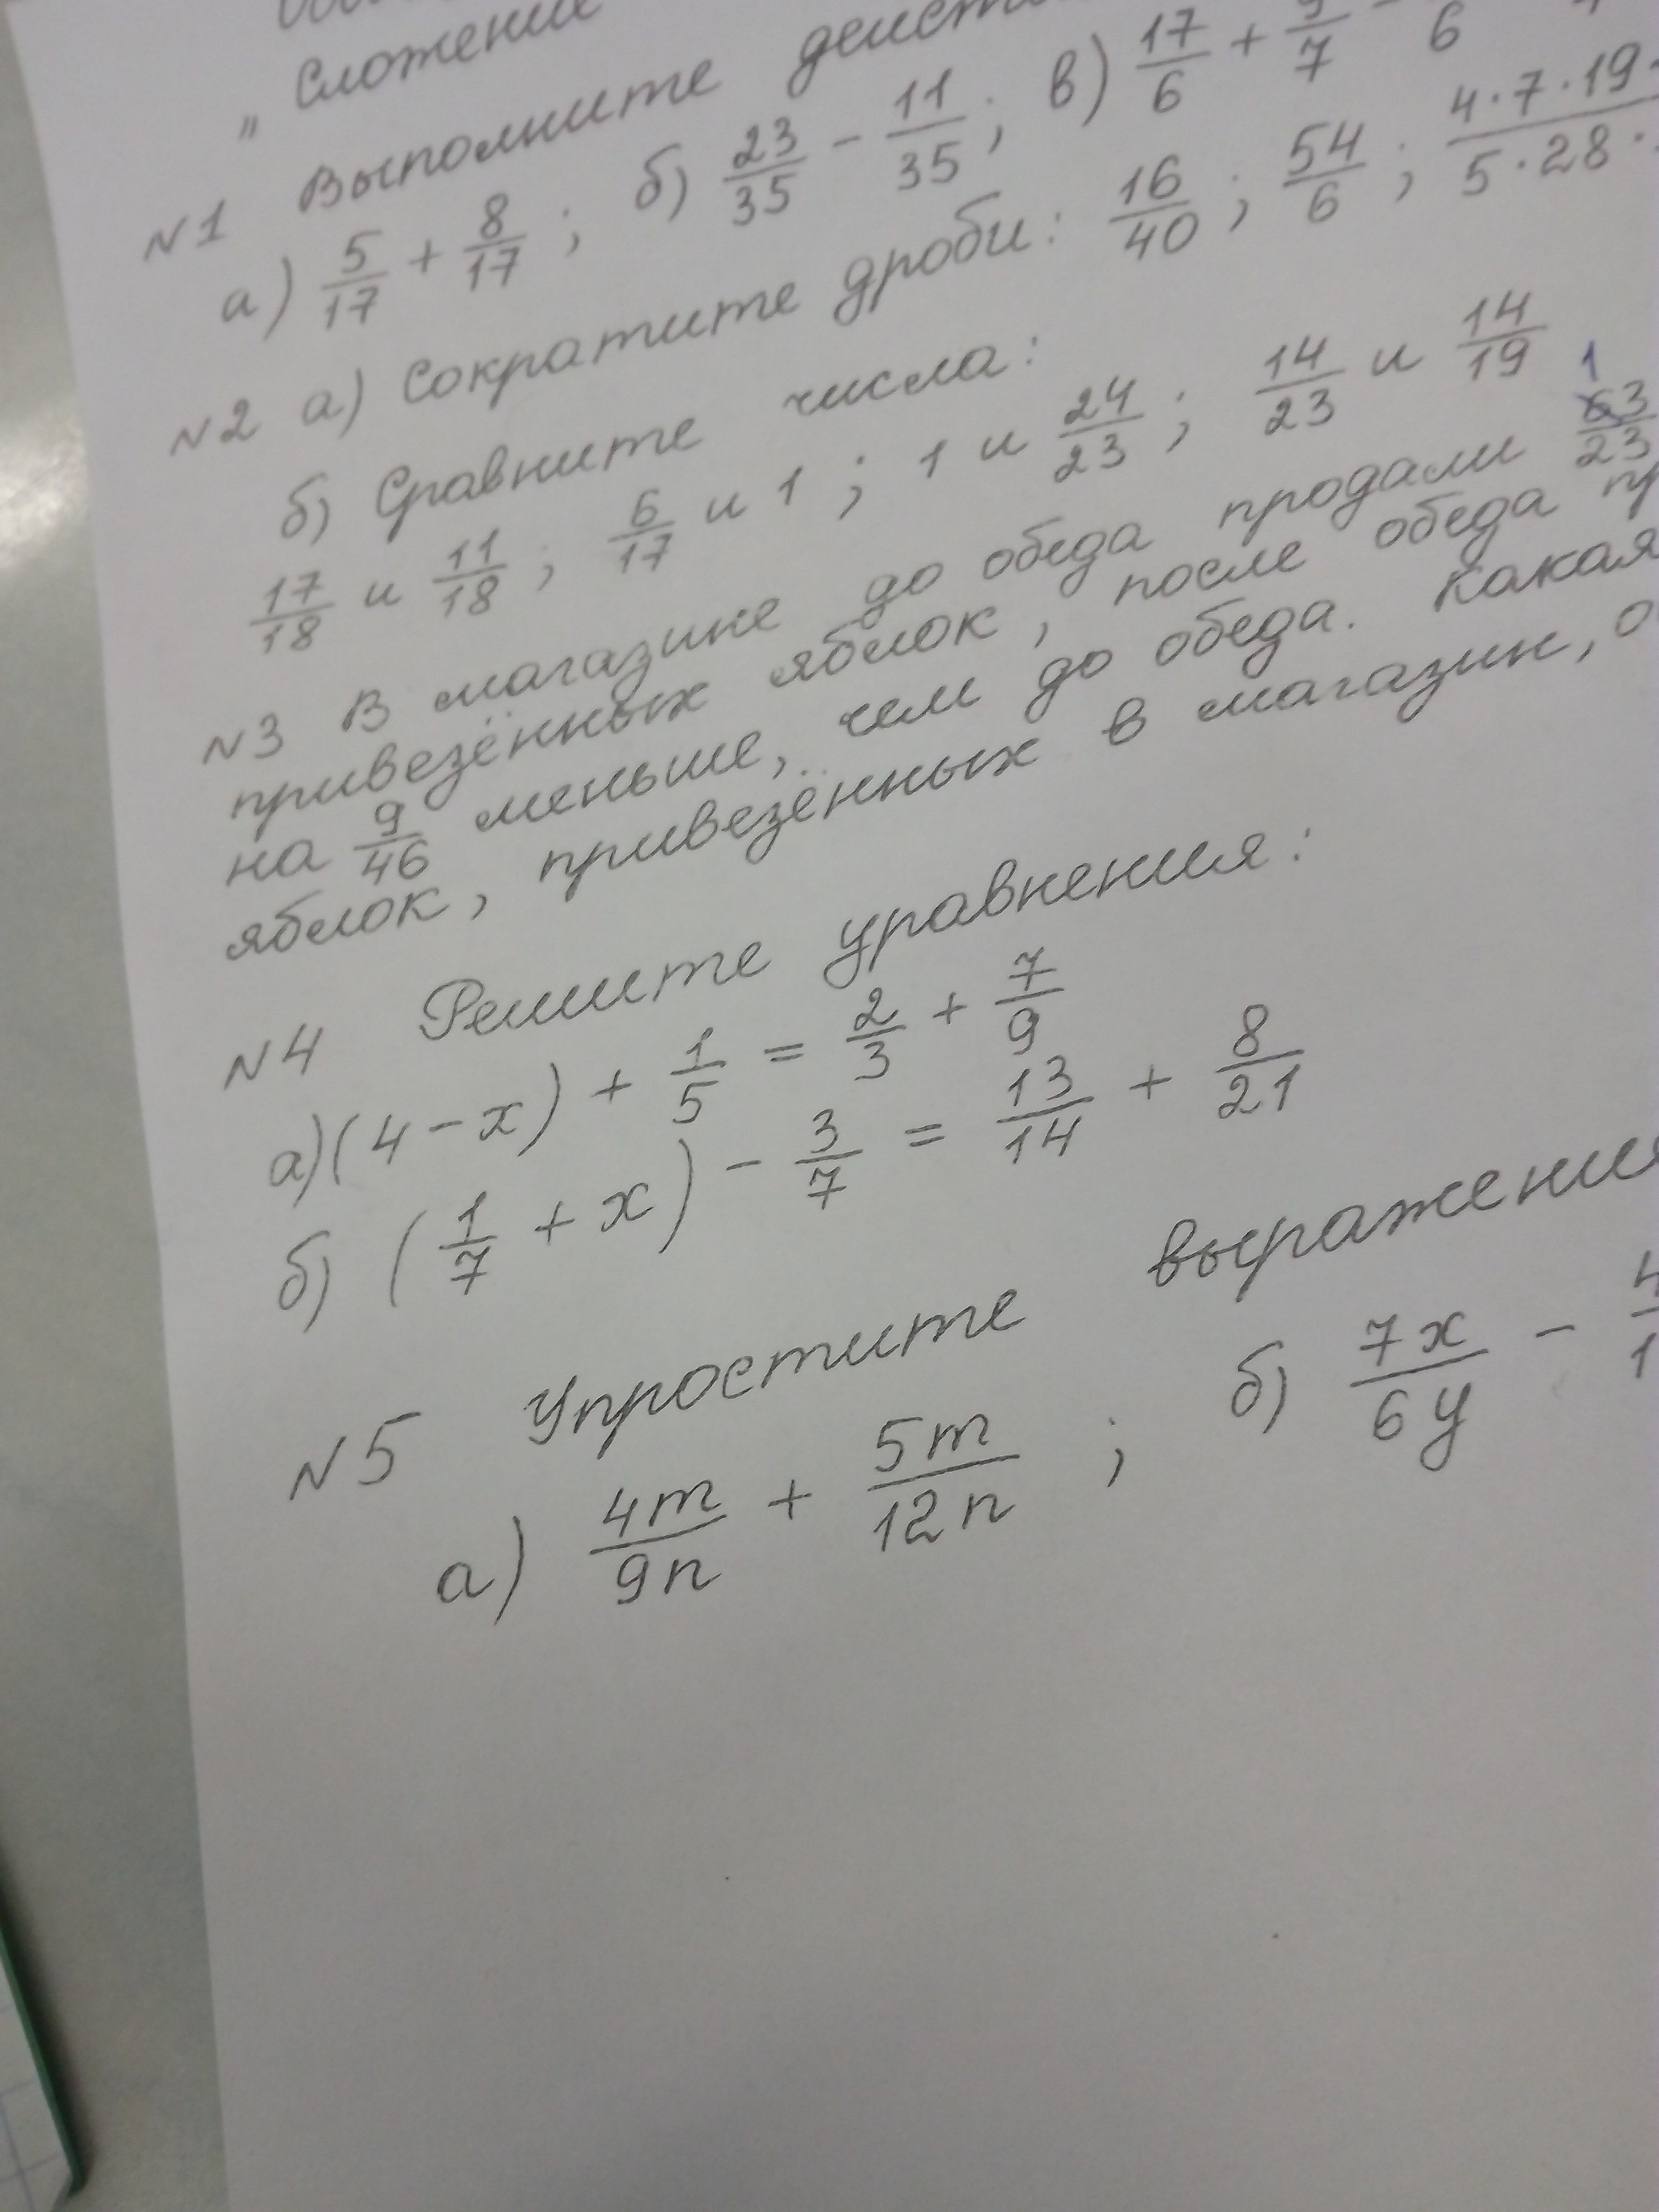 „ Сложение
№1 Выполните
а) 5/17 + 8/17 ; б) 23/35 - 11/35 ; в) 17/6 + 9/7 -
№2 а) Сократите дроби: 16/40 ; 54/6 ; 4·7·19/5·28·
б) Сравните числа:
17/18 и 11/18 ; 6/17 и 1 ; 1 и 24/23 ; 14/23 и 14/19
№3 В магазине до обеда продали
привезённых яблок, после обеда
на 9/46 меньше, чем до обеда. Какая
яблок, привезённых в магазин,
№4 Решите уравнения:
а) (4 - x) + 1/5 = 2/3 + 7/9
б) (1/7 + x) - 3/7 = 13/14 + 8/21
№5 Упростите выражения
а) 4m/9n + 5m/12n ; б) 7x/6y -